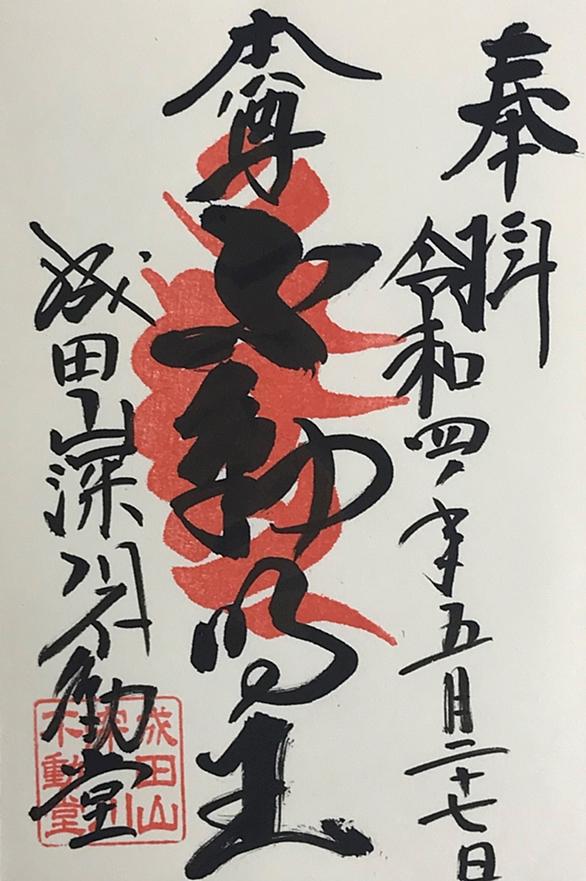 奉拝
令和四年五月二十七日
本尊
不動明王
成田山深川不動堂
成田山
深川
不動堂